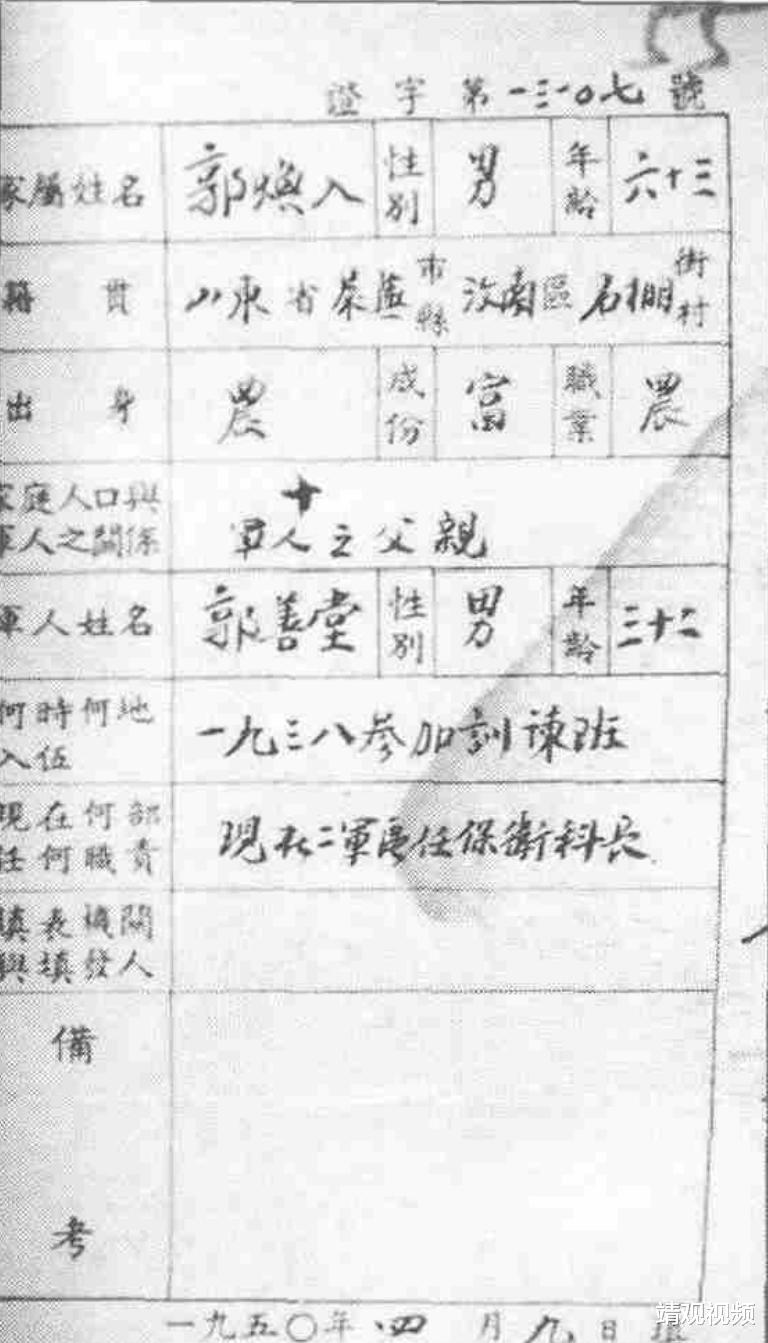 證字第一三一〇七號
家屬姓名 郭煥入 性別 男 年齡 六十三
籍貫 山東省萊蕪市縣 汶南區 石棚街村
出身 農 成份 富 職業 農
家庭人口與軍人之關係 十 軍人之父親
軍人姓名 郭善堂 性別 男 年齡 三十二
何時何地入伍 一九三八參加訓諌班
現在何部任何職責 現在二軍區任保衛科長
填表機關與填發人
備考
一九五〇年四月九日
靖观视频